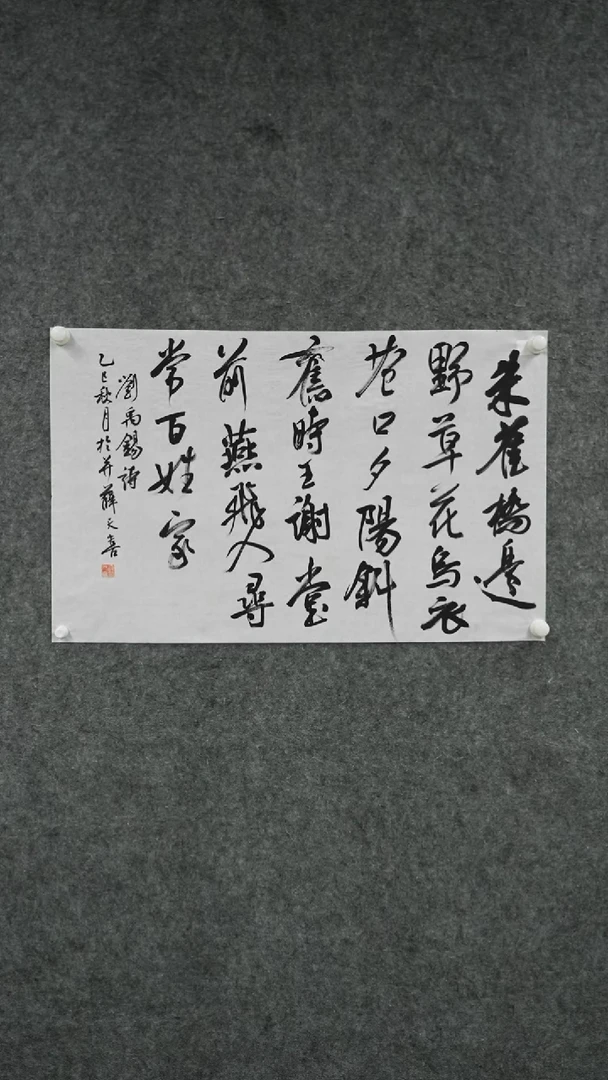 朱雀橋邊
野草花烏衣
巷口夕陽斜
舊時王謝堂
前燕飛入尋
常百姓家
劉禹錫詩
乙巳秋月於并薛天喜